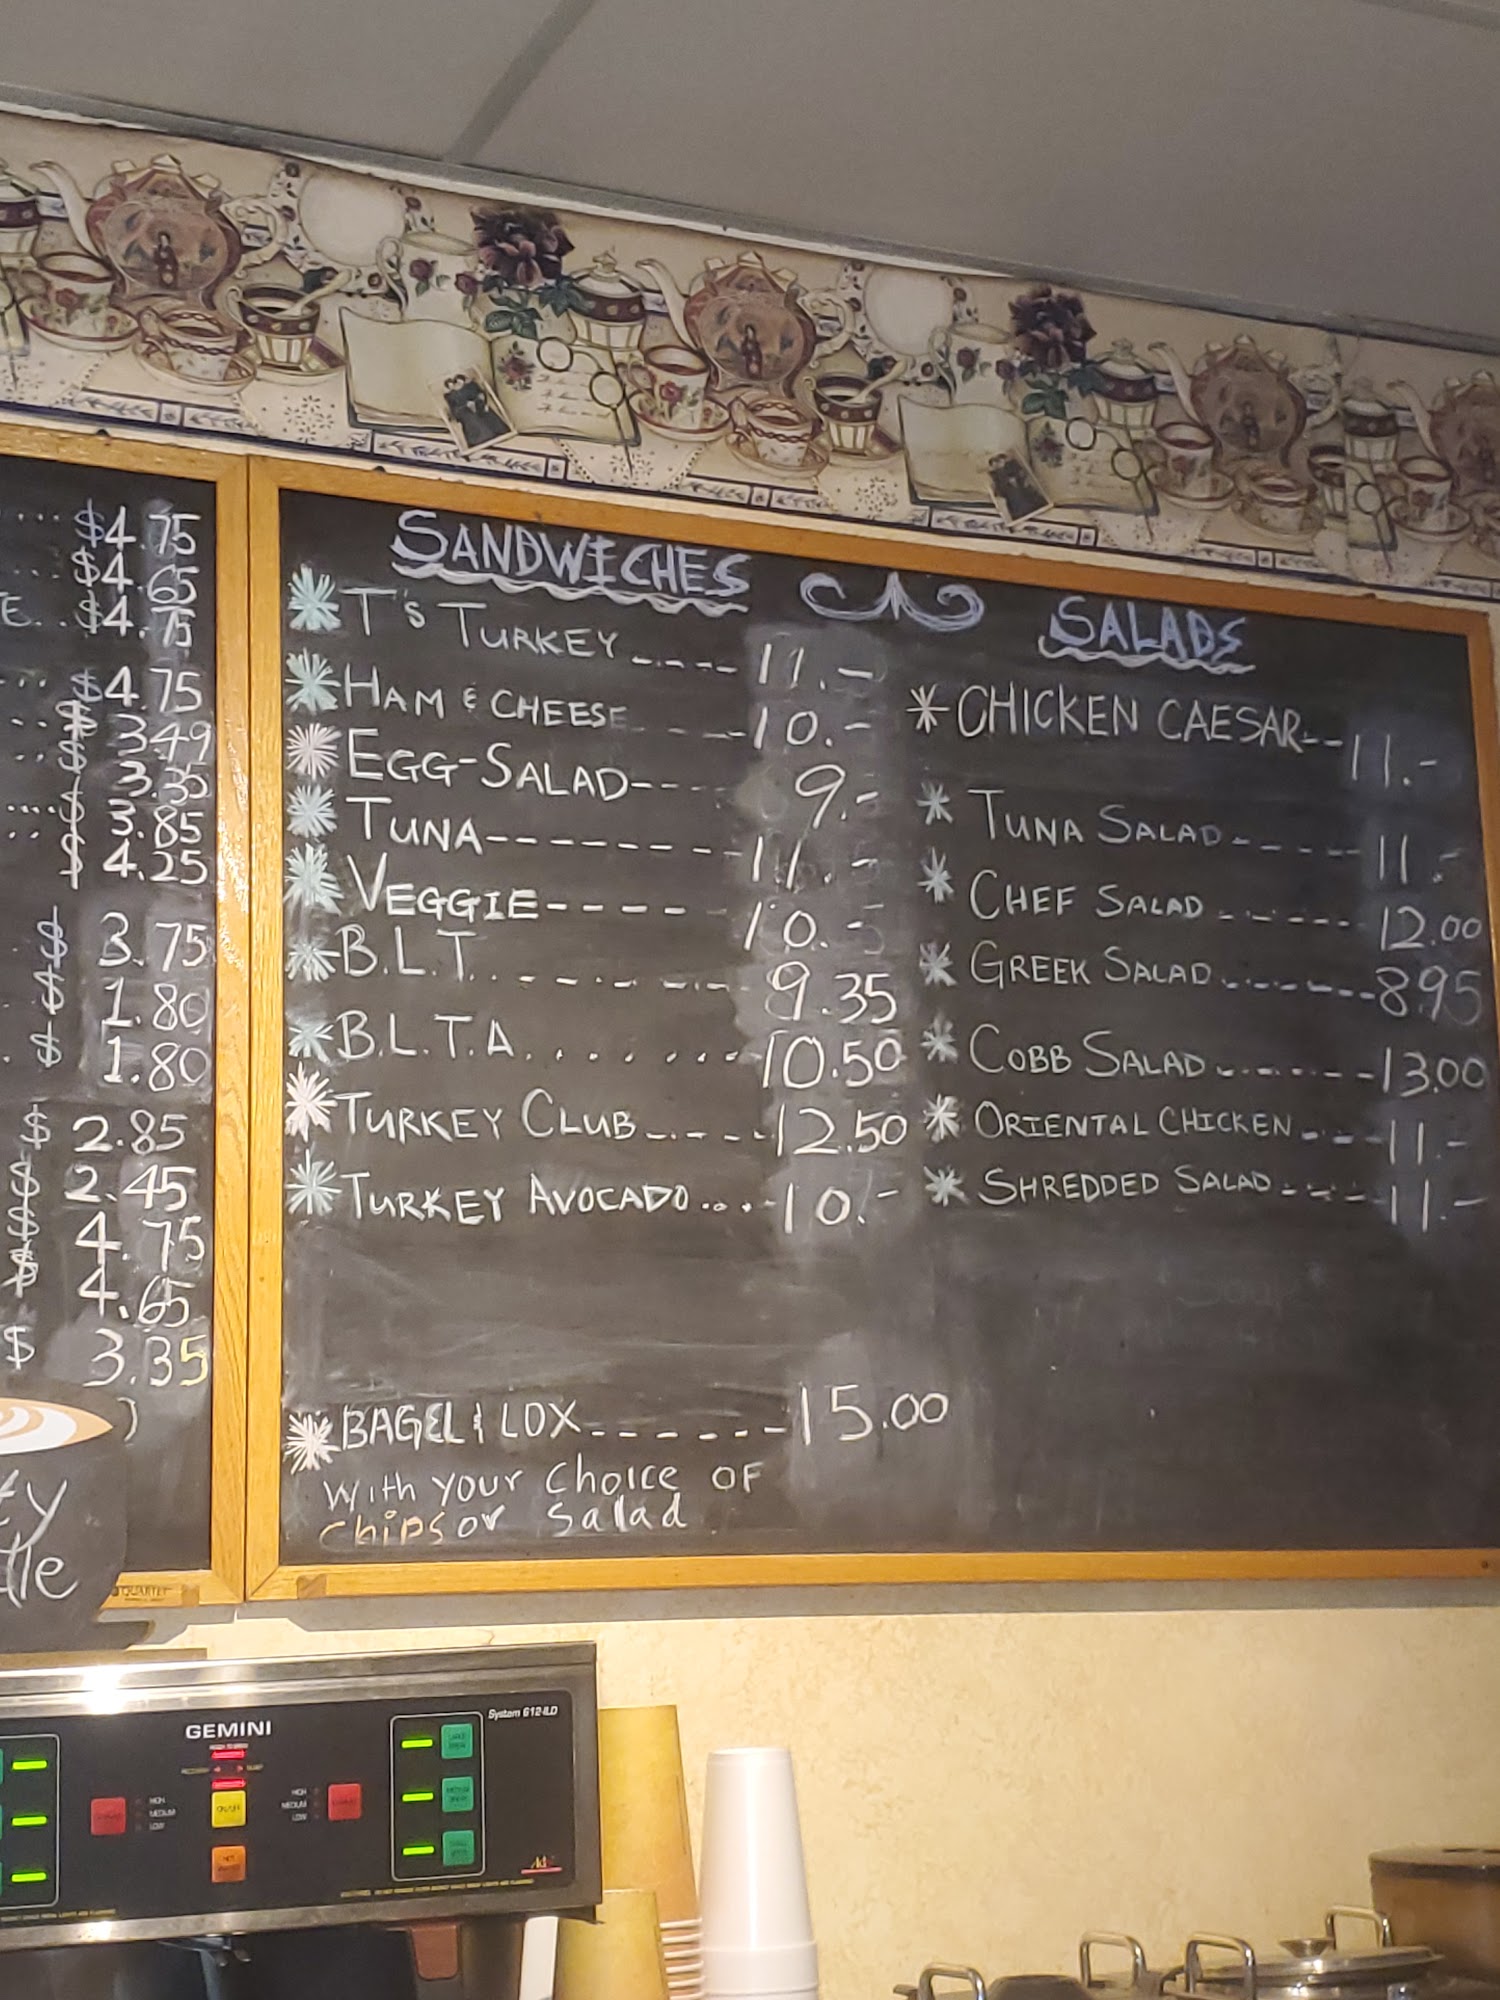 ... $4.75
... $4.65
E... $4.75
... $4.75
.. $ 3.49
.. $ 3.35
.... $ 3.85
.. $ 4.25
$ 3.75
$ 1.80
. $ 1.80
$ 2.85
$ 2.45
$ 4.75
$ 4.65
$ 3.35
)
QUARTET
SANDWICHES
T's TURKEY ----- 11.-
HAM & CHEESE ----- 10.-
EGG-SALAD ---- 9.-
TUNA -------- 11.-
VEGGIE ----- 10.-
B.L.T. ------- 9.35
B.L.T.A. ....... 10.50
TURKEY CLUB ------ 12.50
TURKEY AVOCADO ...- 10.-
BAGEL & LOX ------- 15.00
With your choice OF
chips or salad
SALADS
CHICKEN CAESAR --- 11.-
TUNA SALAD ------ 11.-
CHEF SALAD ------- 12.00
GREEK SALAD ------- 8.95
COBB SALAD ------- 13.00
ORIENTAL CHICKEN ---- 11.-
SHREDDED SALAD ----- 11.-
GEMINI
System G12-ILD
HIGH
MEDIUM
LOW
ON/OFF
HIGH
MEDIUM
LOW